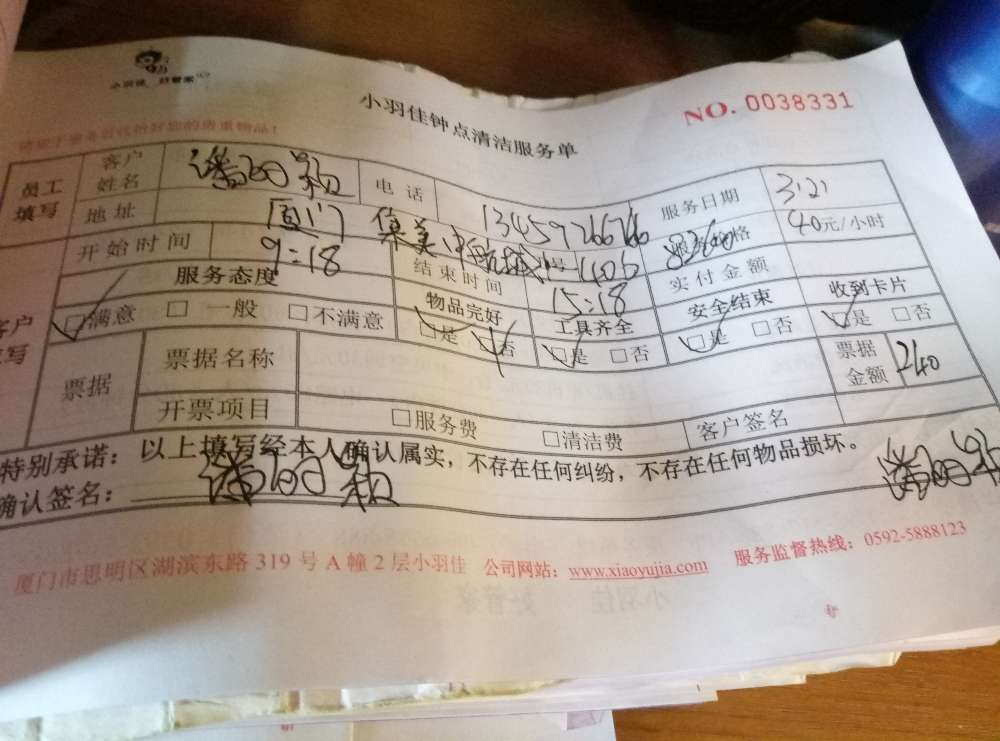 小羽佳 好管家
小羽佳钟点清洁服务单
NO. 0038331
员工填写 客户姓名 潘 电话 13459726676 服务日期 3.21
地址 厦门 集美 中航城 号 1406 40元/小时
开始时间 9:18 结束时间 15:18 实付金额
服务态度 物品完好 工具齐全 安全结束 收到卡片
☑满意 □一般 □不满意 □是 □否 ☑是 □否 ☑是 □否 ☑是 □否
票据 票据名称 票据金额 240
开票项目 □服务费 □清洁费 客户签名
特别承诺：以上填写经本人确认属实，不存在任何纠纷，不存在任何物品损坏。
确认签名：
厦门市思明区湖滨东路 319 号 A 幢 2 层小羽佳 公司网站：www.xiaoyujia.com 服务监督热线：0592-5888123